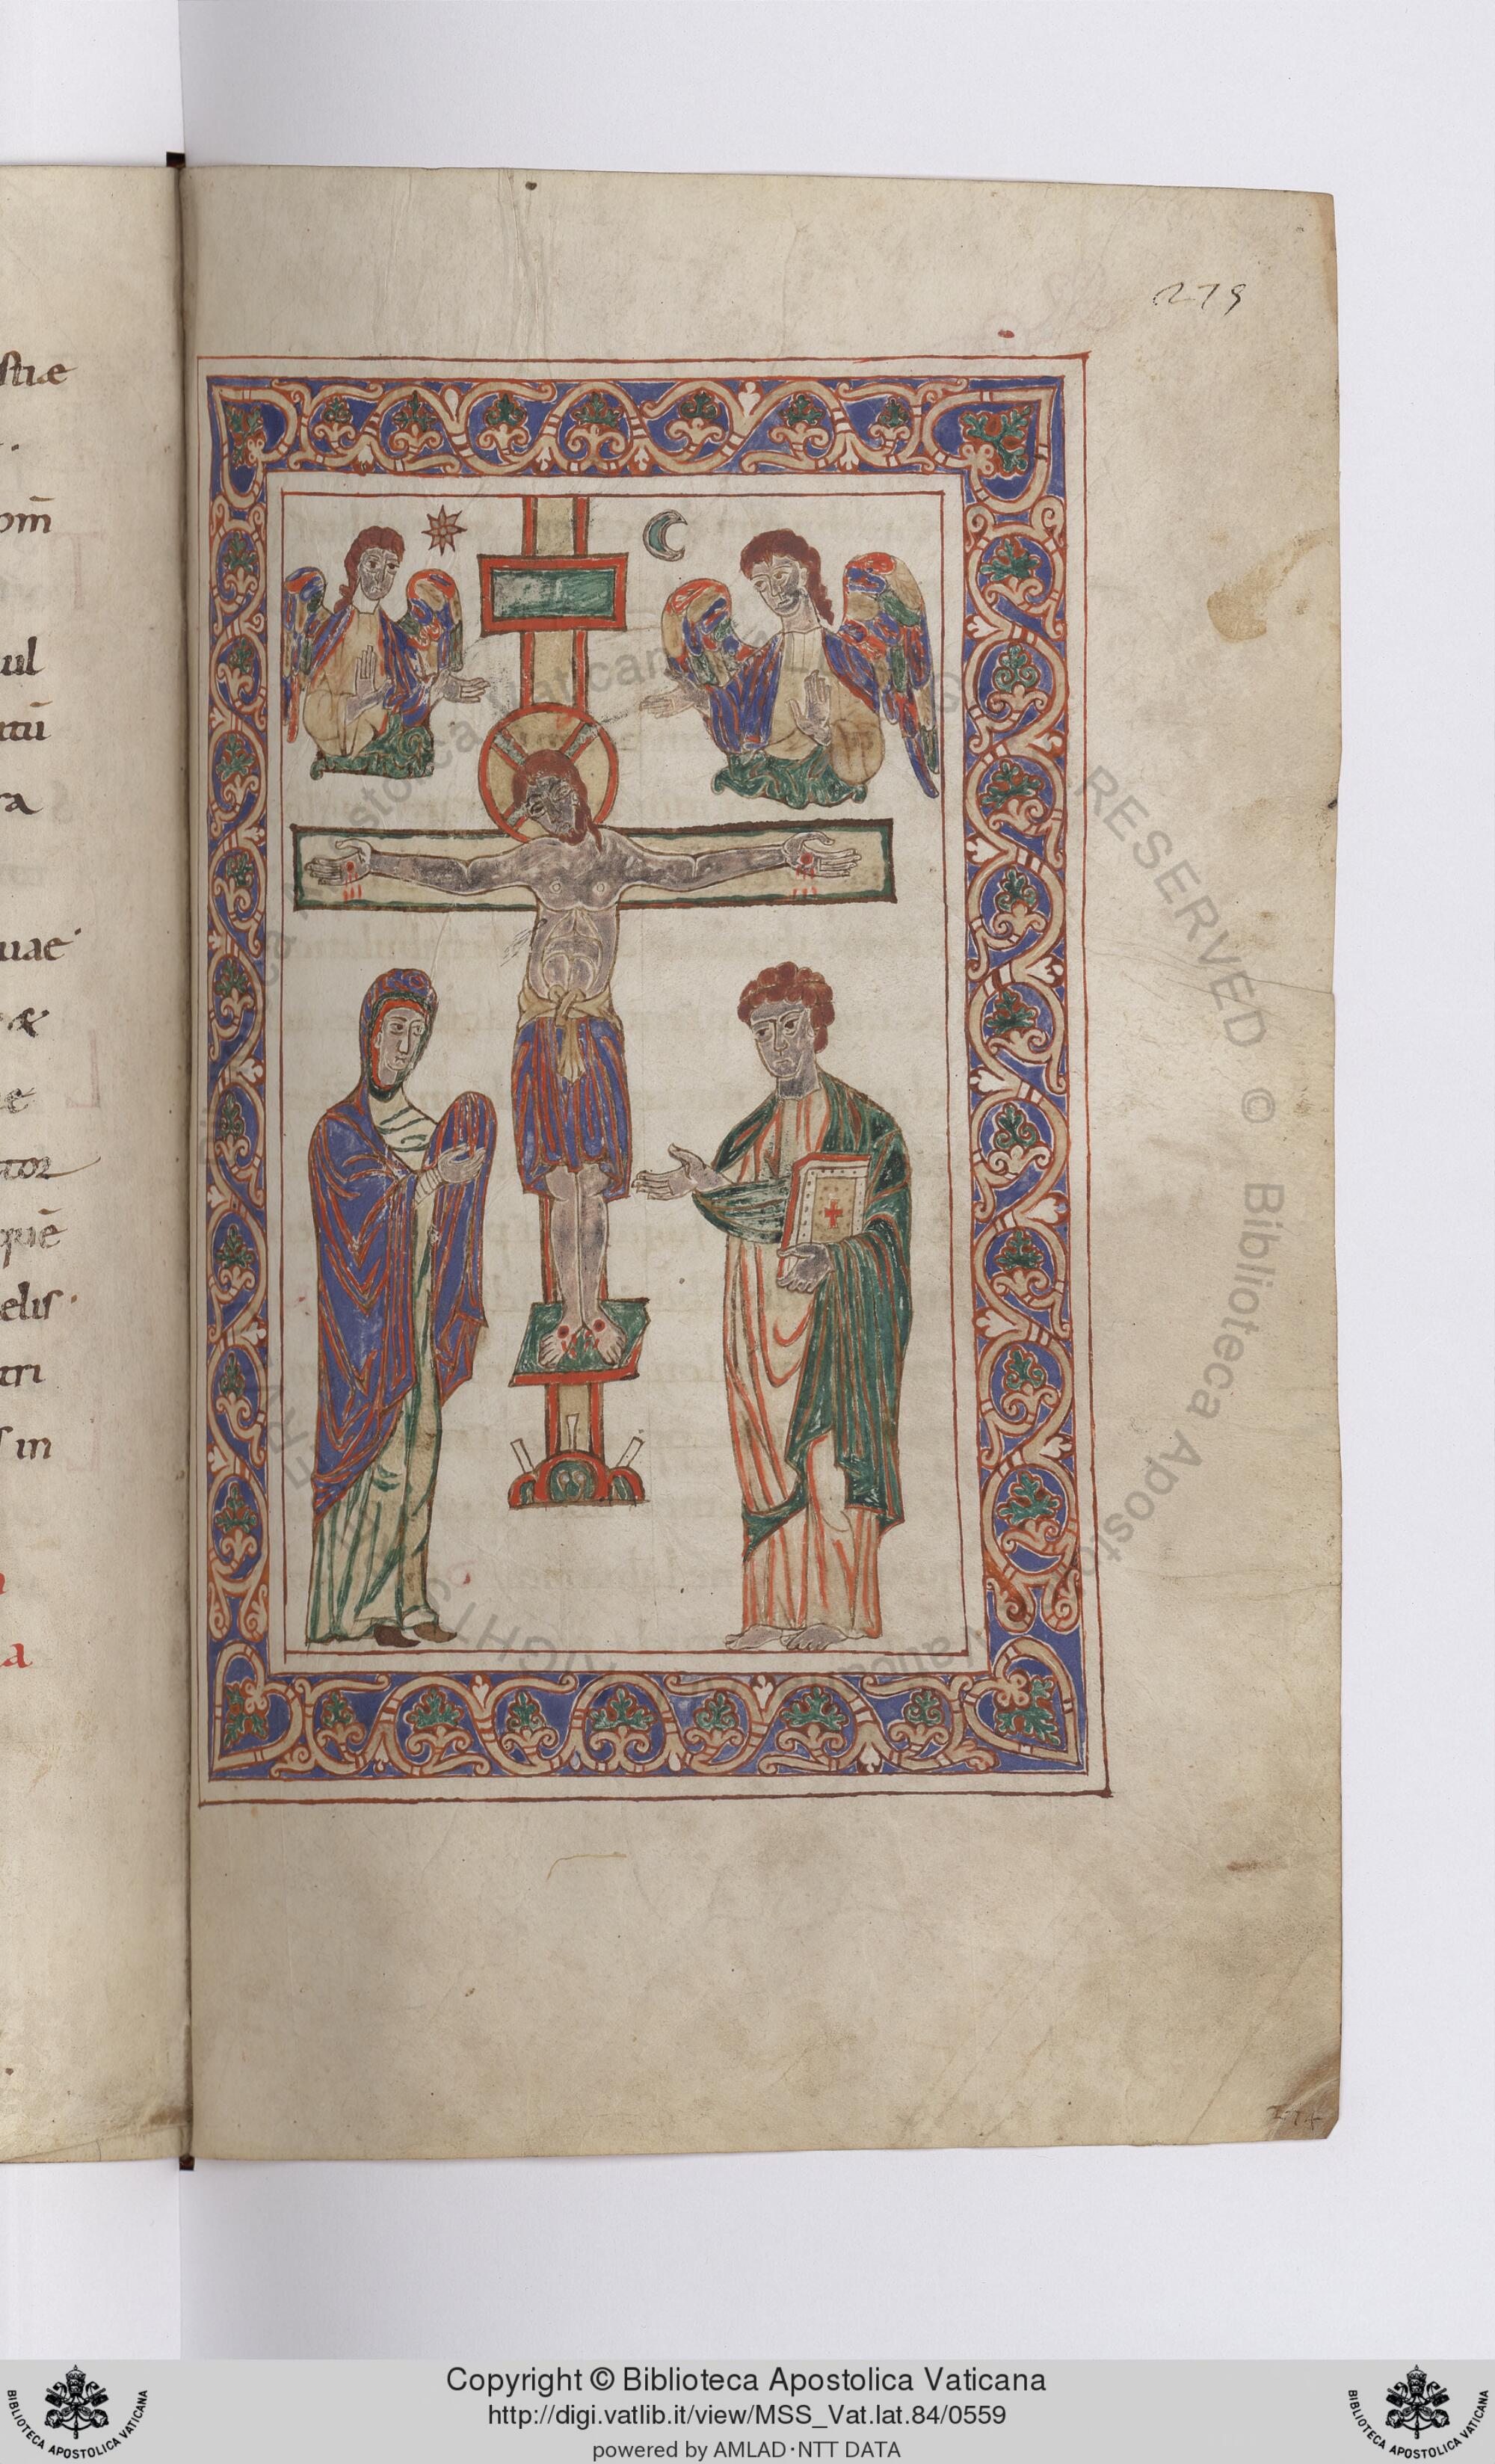 ſtiæ
om̄
ul
ra
uae
&
e
tor
quē
eliſ
tri
ſ in
a
279
274
Biblioteca Apostolica Vaticana
ALL RIGHTS RESERVED © Biblioteca Apostolica Vaticana
Copyright © Biblioteca Apostolica Vaticana
http://digi.vatlib.it/view/MSS_Vat.lat.84/0559
powered by AMLAD·NTT DATA
BIBLIOTECA APOSTOLICA VATICANA
BIBLIOTECA APOSTOLICA VATICANA